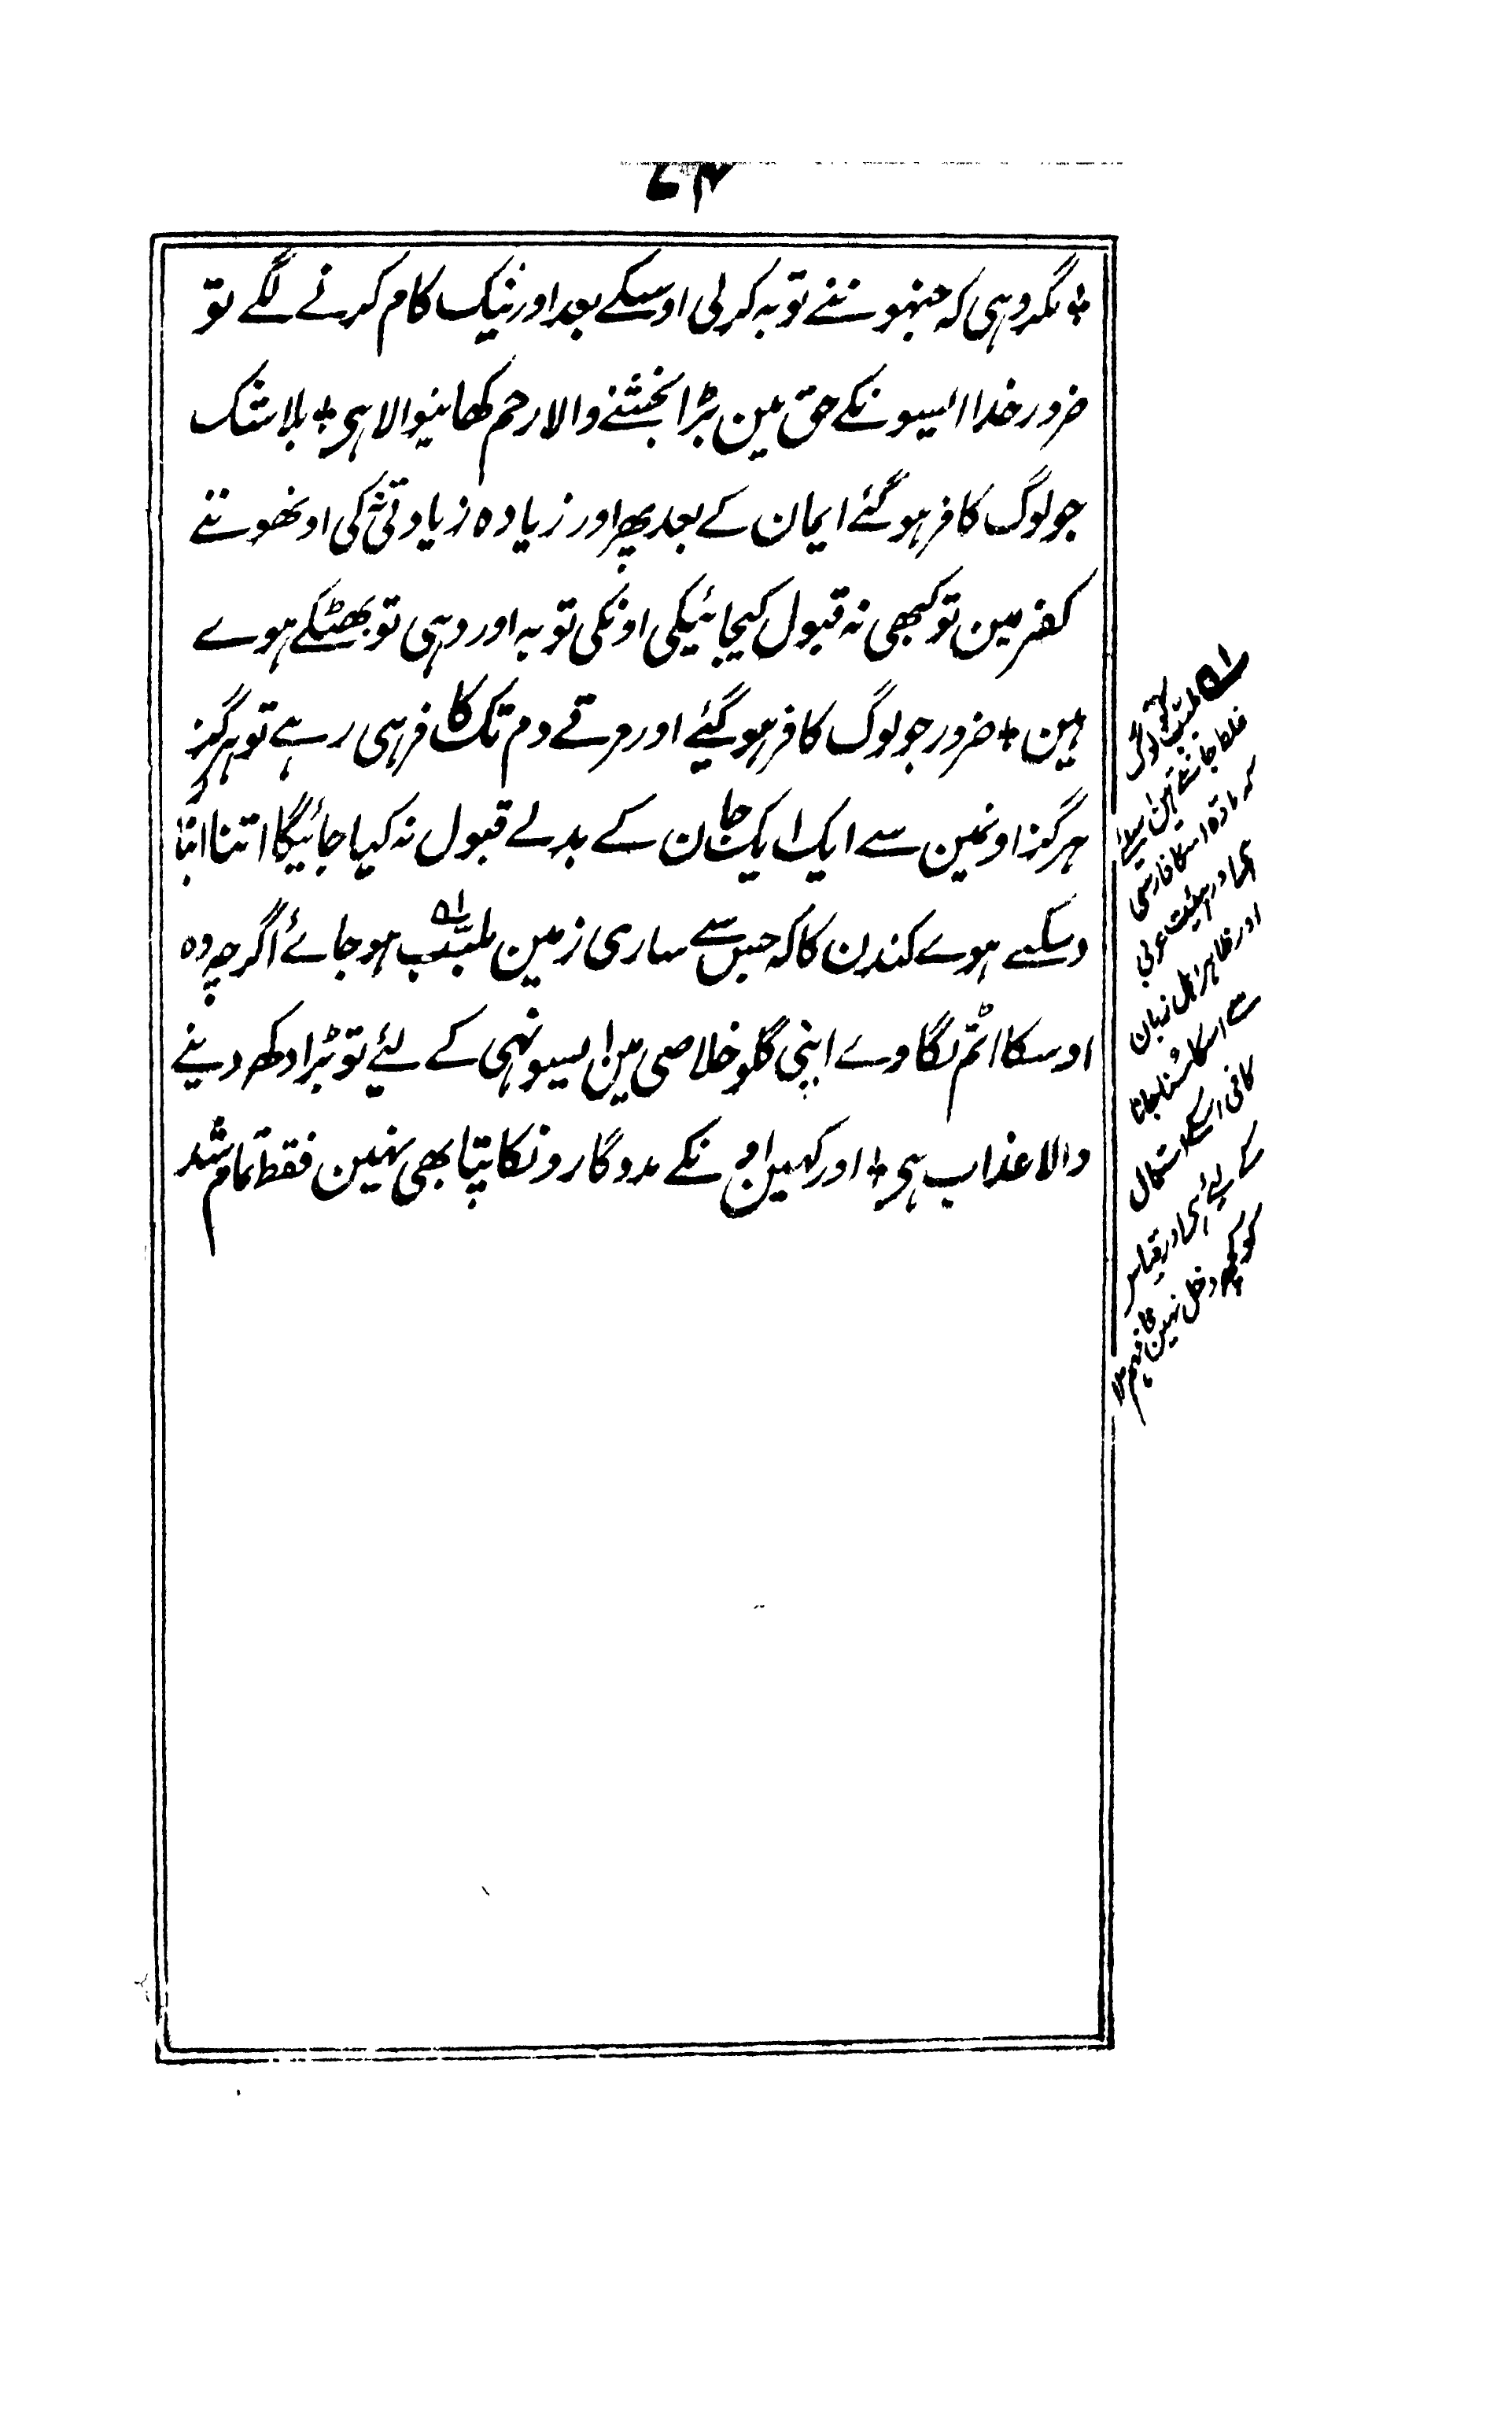 + مگر وہی کہ جنہوننے توبہ کر لی اوسکے بعد اور نیک کام کرنے لگے تو
ضرور خدا ایسونکے حق مین بڑا بخشنے والا رحم کھانیوالا ہی + بلا شک
جو لوگ کافر ہو گئے ایمان کے بعد پھر اور زیادہ زیادتی کی اونھوننے
کفر مین تو کبھی نہ قبول کیجائیگی اونکی توبہ اور وہی تو بھٹکے ہوے
ہین + ضرور جو لوگ کافر ہو گئے اور مرتے دم تک کافر ہی رہے تو ہرگز
ہرگز اونمین سے ایک ایک جان کے بدلے قبول نہ کیا جائیگا اتنا اتنا
دمکتے ہوے کندن کا کہ جس سے ساری زمین ملبب ہو جائے اگرچہ وہ
اوسکا اٹم لگا دے اپنی گلو خلاصی مین ایسونہی کے لیئے تو بڑا دکھ دینے
والا عذاب ہی + اور کہین اونکے مددگارونکا پتا بھی نہین فقط تمام شد
غلط جانتے ہین اسلیے
کہ مادہ اسکا فارسی
ہی اور ہیئت عربی
اور ظاہر اہل زبان
سے اسکا سنا جانا
کافی اسکے استعمال
کے لیئے ہی اور قیاس
کو کچھ دخل نہین فافہم ۱۲